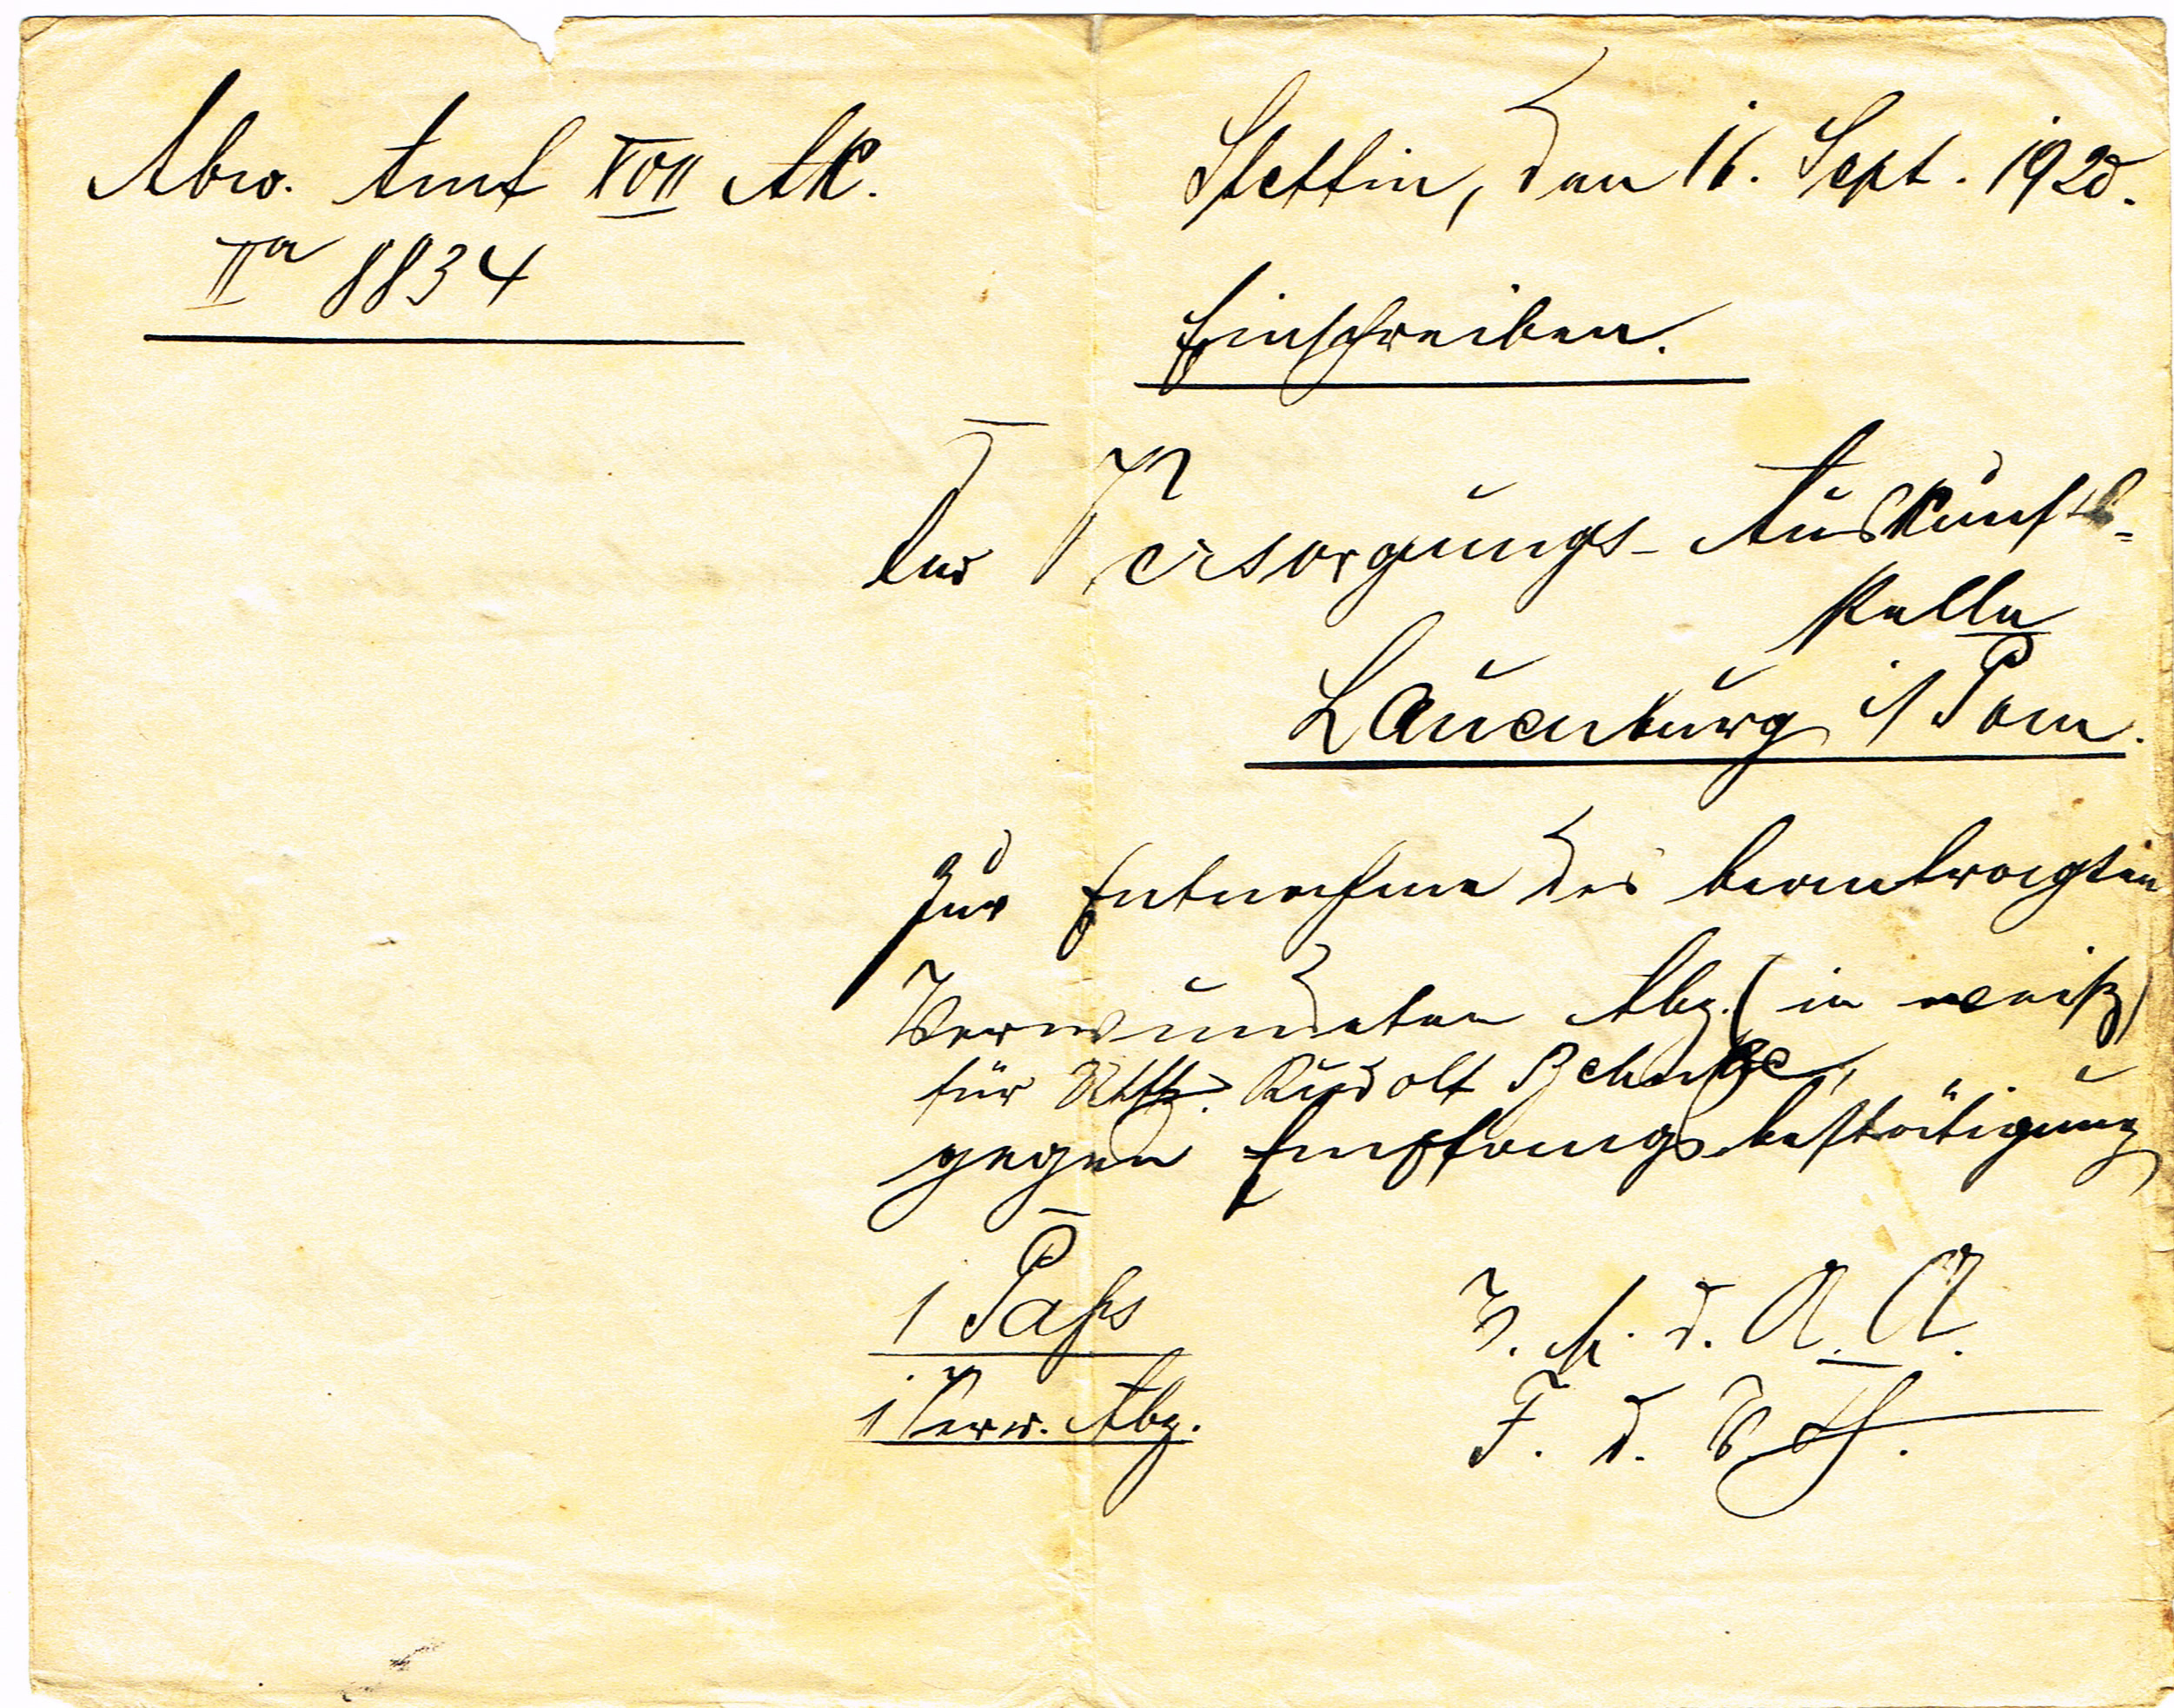 Abw. Amt XVII AK.
IIa 8834
Stettin, den 16. Sept. 1920.
Einschreiben.
Der Versorgungs-Auskunfts-
stelle
Lauenburg i/Pom.
zur Entnahme des beantragten
Verwundeten Abz. (in weiß)
für Rudolf
gegen Empfangsbestätigung
1 Pass
1 Verw. Abz.
V. S. d. A. A.
F. d. R.